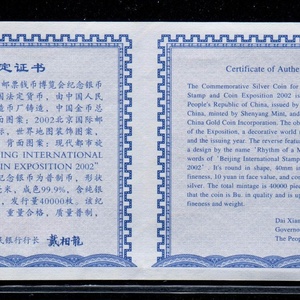 定证书
邮票钱币博览会纪念银币
国法定货币，由中国人民
造币厂铸造，中国金币总
面图案：2002北京国际邮
标，世界地图装饰图案，
背面图案：现代都市旋
JING INTERNATIONAL
COIN EXPOSITION 2002"
纪念银币为普制币，形状
毫米，成色99.9%，含纯银
，发行量40000枚。该纪
重量合格，质量普制，
民银行行长 戴相龍
Certificate of Authe
The Commemorative Silver Coin for
Stamp and Coin Exposition 2002 is
People's Republic of China, issued by
China, minted by Shenyang Mint, and
China Gold Coin Incorporation. The ob
of the Exposition, a decorative world
and the issuing year. The reverse feature
a design by the name 'Rhythm of a M
words of 'Beijing International Stamp
2002'. It's round in shape, 40mm in
fineness, 10 yuan in face value, and cont
silver. The total mintage is 40000 piece
that the coin is Bu. in quality and is up
weight and fineness.
Dai Xian
Governo
The Peo